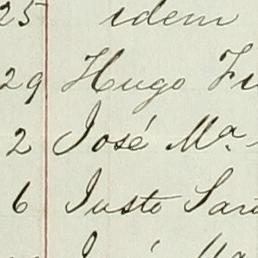 25 idem
29 Hugo
2 José Mª
6 Justo